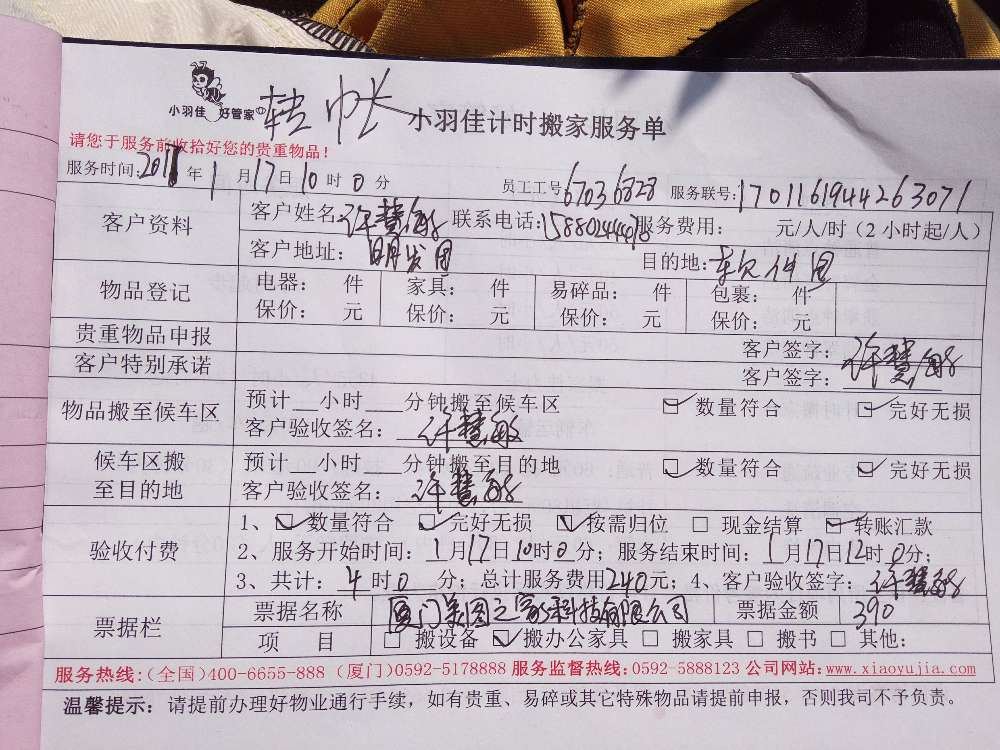 小羽佳 好管家
转帐
小羽佳计时搬家服务单
请您于服务前收拾好您的贵重物品！
服务时间：2017年1月17日10时0分 员工工号67036828 服务联号：1701161944263071
客户资料 客户姓名：许慧敏 联系电话：15880244478 服务费用： 元/人/时（2小时起/人）
客户地址：明发园 目的地：软件园
物品登记 电器： 件 家具： 件 易碎品： 件 包裹： 件
保价： 元 保价： 元 保价： 元 保价： 元
贵重物品申报 客户签字：许慧敏
客户特别承诺 客户签字：
物品搬至候车区 预计__小时___分钟搬至候车区 ☑数量符合 ☑完好无损
客户验收签名：许慧敏
候车区搬至目的地 预计__小时___分钟搬至目的地 ☑数量符合 ☑完好无损
客户验收签名：许慧敏
验收付费 1、☑数量符合 ☑完好无损 ☑按需归位 □现金结算 ☑转账汇款
2、服务开始时间：1月17日10时0分；服务结束时间：1月17日12时0分；
3、共计：4时0分；总计服务费用240元；4、客户验收签字：许慧敏
票据栏 票据名称 厦门美图之家科技有限公司 票据金额 390
项 目 □搬设备 ☑搬办公家具 □搬家具 □搬书 □其他：
服务热线：（全国）400-6655-888（厦门）0592-5178888 服务监督热线：0592-5888123 公司网站：www.xiaoyujia.com
温馨提示：请提前办理好物业通行手续，如有贵重、易碎或其它特殊物品请提前申报，否则我司不予负责。